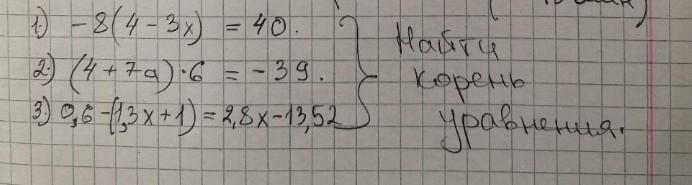 1) -8(4-3x) = 40.
2) (4+7a)·6 = -39.
3) 0,6-(1,3x+1)=2,8x-13,52
Найти
корень
уравнения.